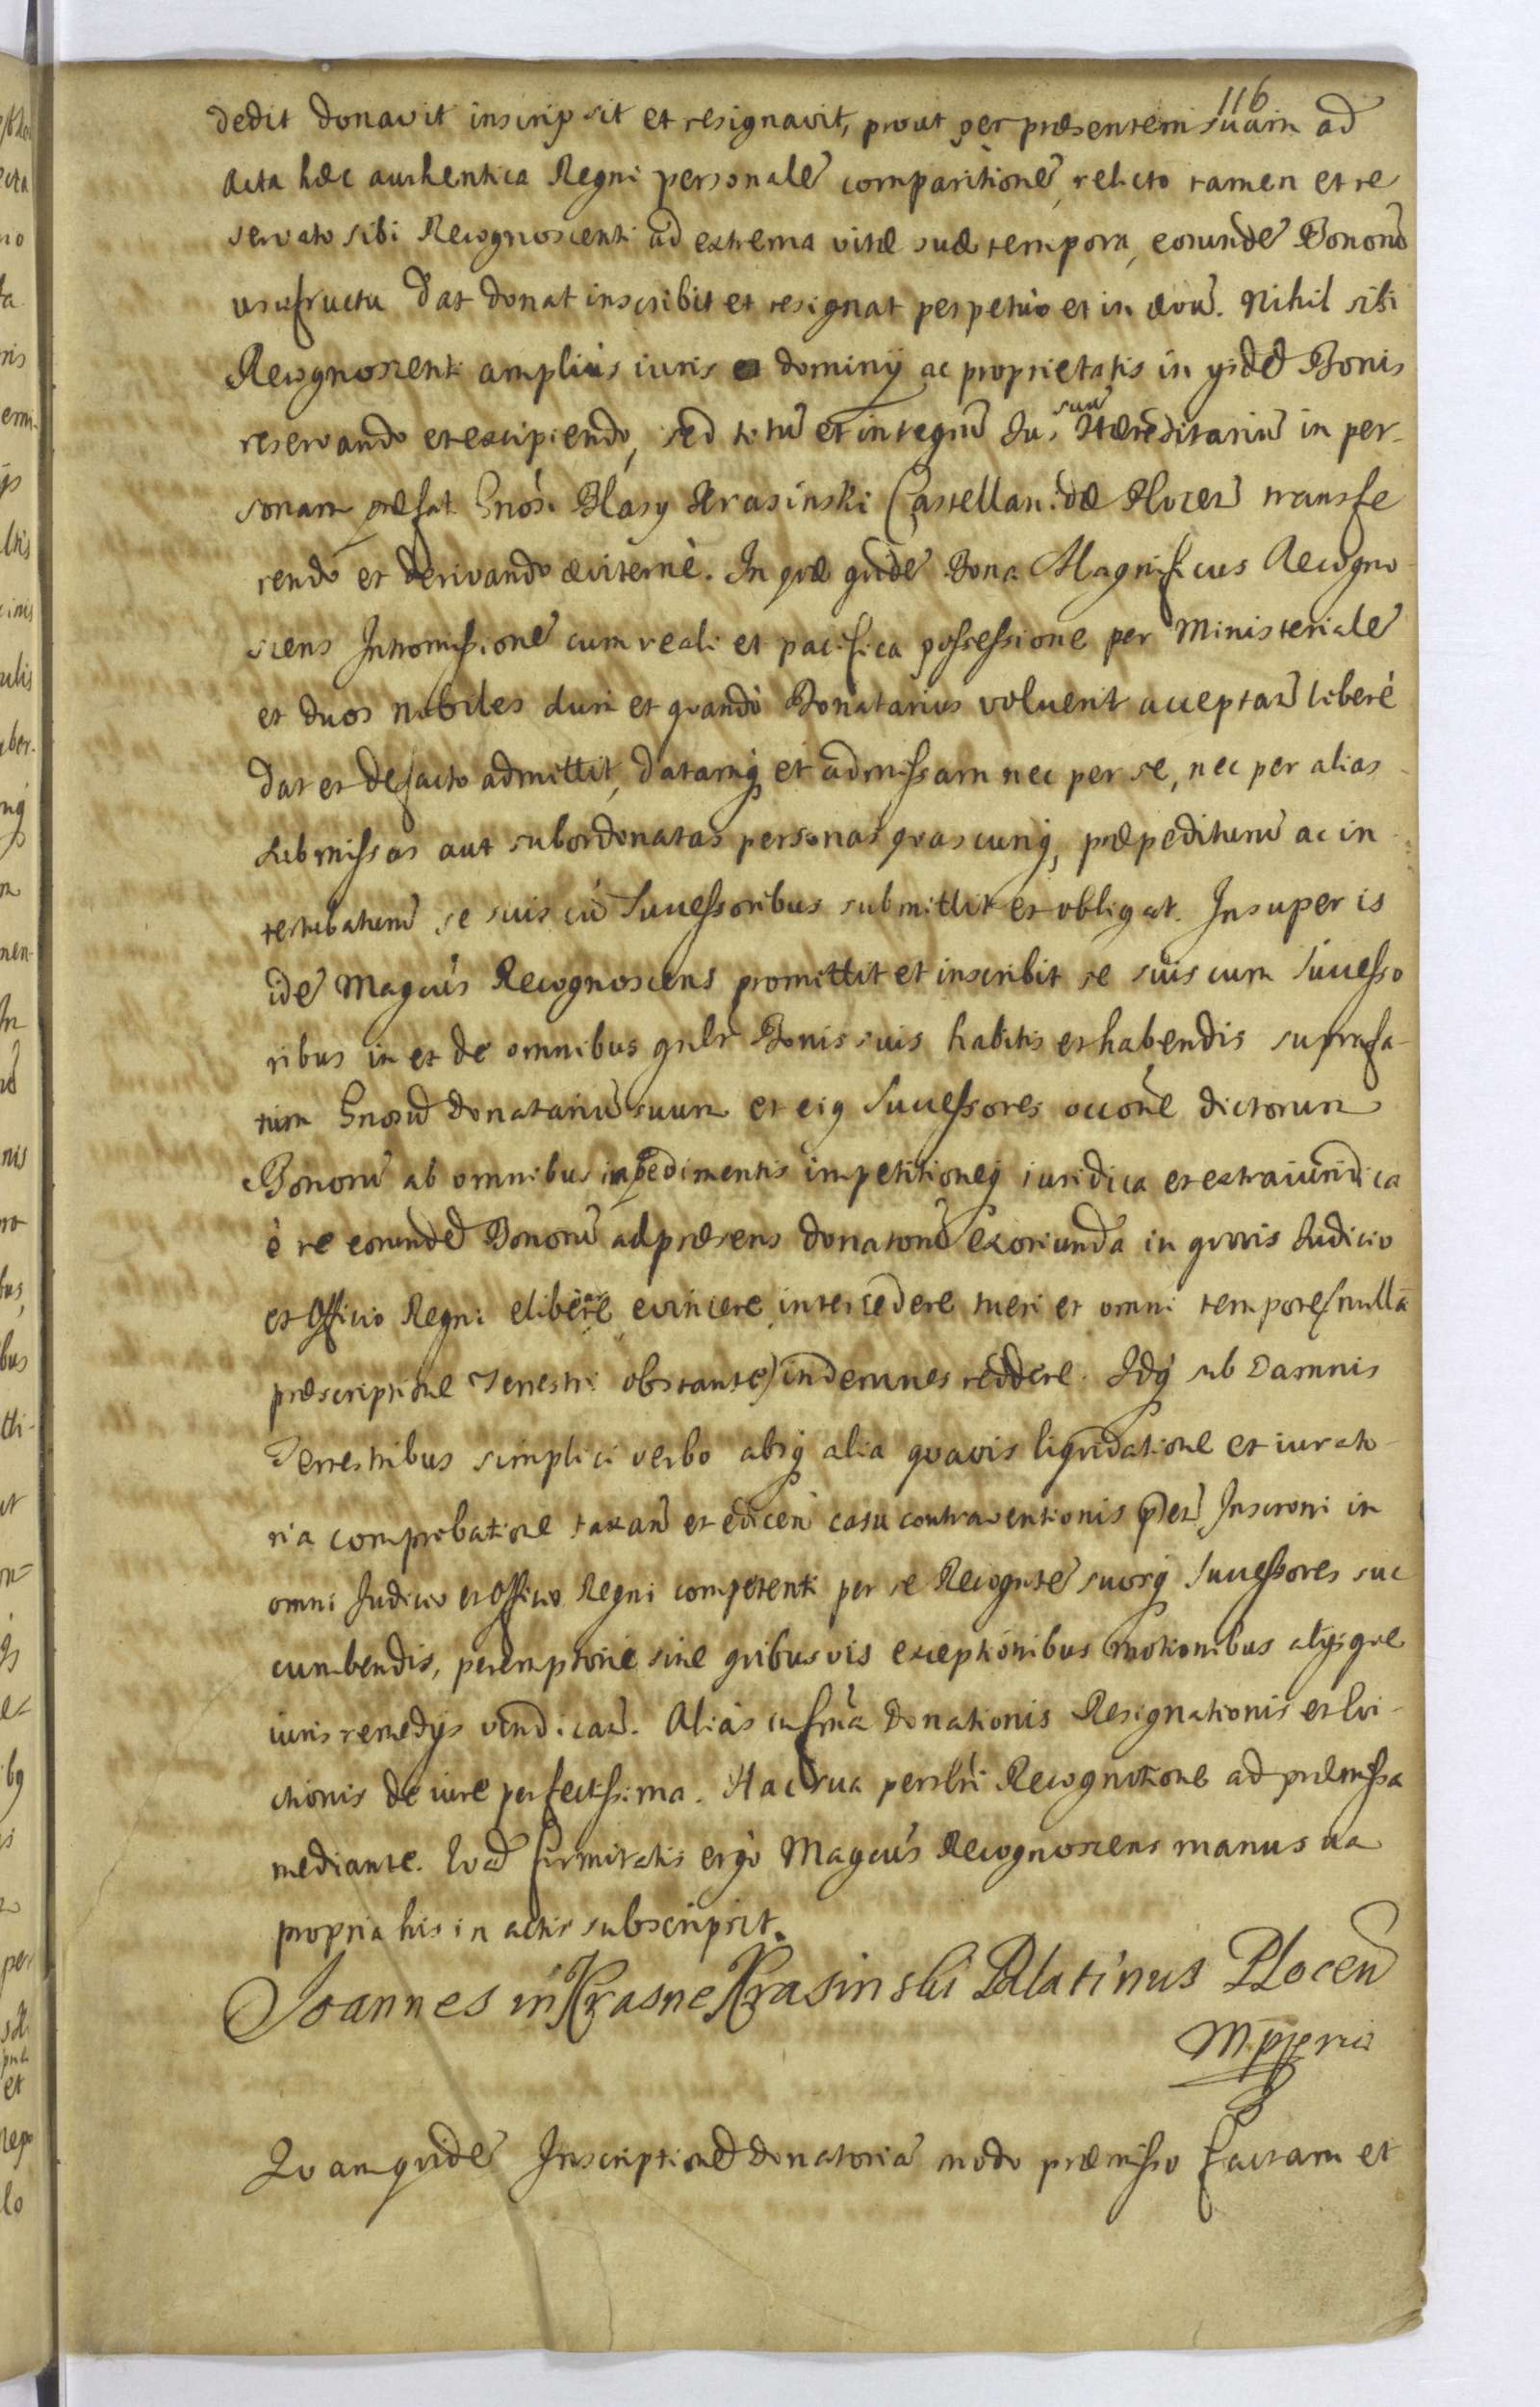 116
dedit donavit inscripsit et resignavit, prout per præsentem suam ad
Acta hæc authentica Regni personale͂ comparitione͂, relicto tamen et re
servato sibi Recognoscenti ad extrema vitæ suæ tempora, eorunde͂ Bonoru͂
usufructu dat donat inscribit et resignat perpetuò et in ævu͂. Nihil sibi
Recognoscenti ampliùs iuris dominÿ ac proprietatis in ÿsde͂ Bonis
reservando et excipiendo, sed totu͂ et integru͂ Jus suu͂ Hæreditariu͂ in per-
sonam præfat Gnosi Blasÿ Krasinski Castellan:dæ Plocen͂ transfe
rendo et derivando æviternè. In quæ quide͂ Bona Magnificus Recogno
scens Intromissione͂ cum reali et pacifica possessione per Ministeriale͂
et duos nobiles dum et quandò Donatarius voluerit acceptan͂ liberè
dat et defacto admittit, datamq et admissam nec per se, nec per alias
submissas aut subordonatas personas quascunq, præpedituru͂ ac in
terturbaturu͂ se suis cu͂ Successoribus submittit et obligat. Insuper is
ide͂ Magcus Recognoscens promittit et inscribit se suis cum Successo
ribus in et de omnibus gnlr Bonis suis habitis et habendis suprafa-
tum Gnosu͂ donatariu͂ suum et eiq Successores occone dictorum
Bonoru͂ ab omnibus impedimentis impetitioneq iuridica et extraiuridica
è re eorunde͂ Bonoru͂ ad præsens donatoru͂ exoriunda in quovis Judicio
et Officio Regni eliberare evincere intercedere tueri et omni tempore (nulla
præscriptione Terrestri obstante) indemnes reddere. Idq sub Damnis
Terrestribus simplici verbo absq alia quavis liquidatione et iurato-
ria comprobatione taxan͂ et edicen͂ casu contraventionis pnti Inscroni in
omni Judicio et Officio Regni competenti per se Recognte͂ suosq Successores suc
cumbendis, peremptoriè sine quibusvis exceptionibus motionibus alÿsque
iuris remedÿs vindican͂. Aliàs in frma donationis Resignationis et Evi-
ctionis de iure perfectissima. Hac sua persnli Recognitione ad præmissa
mediante. Quod firmitatis ergò Magcus Recognoscens manu sua
propria his in actis subscripsit.
Joannes in Krasne Krasinski Palatinus Plocen͂
Mppria
Quamquide͂ Inscriptione͂ donatoria͂ modo præmisso factam et